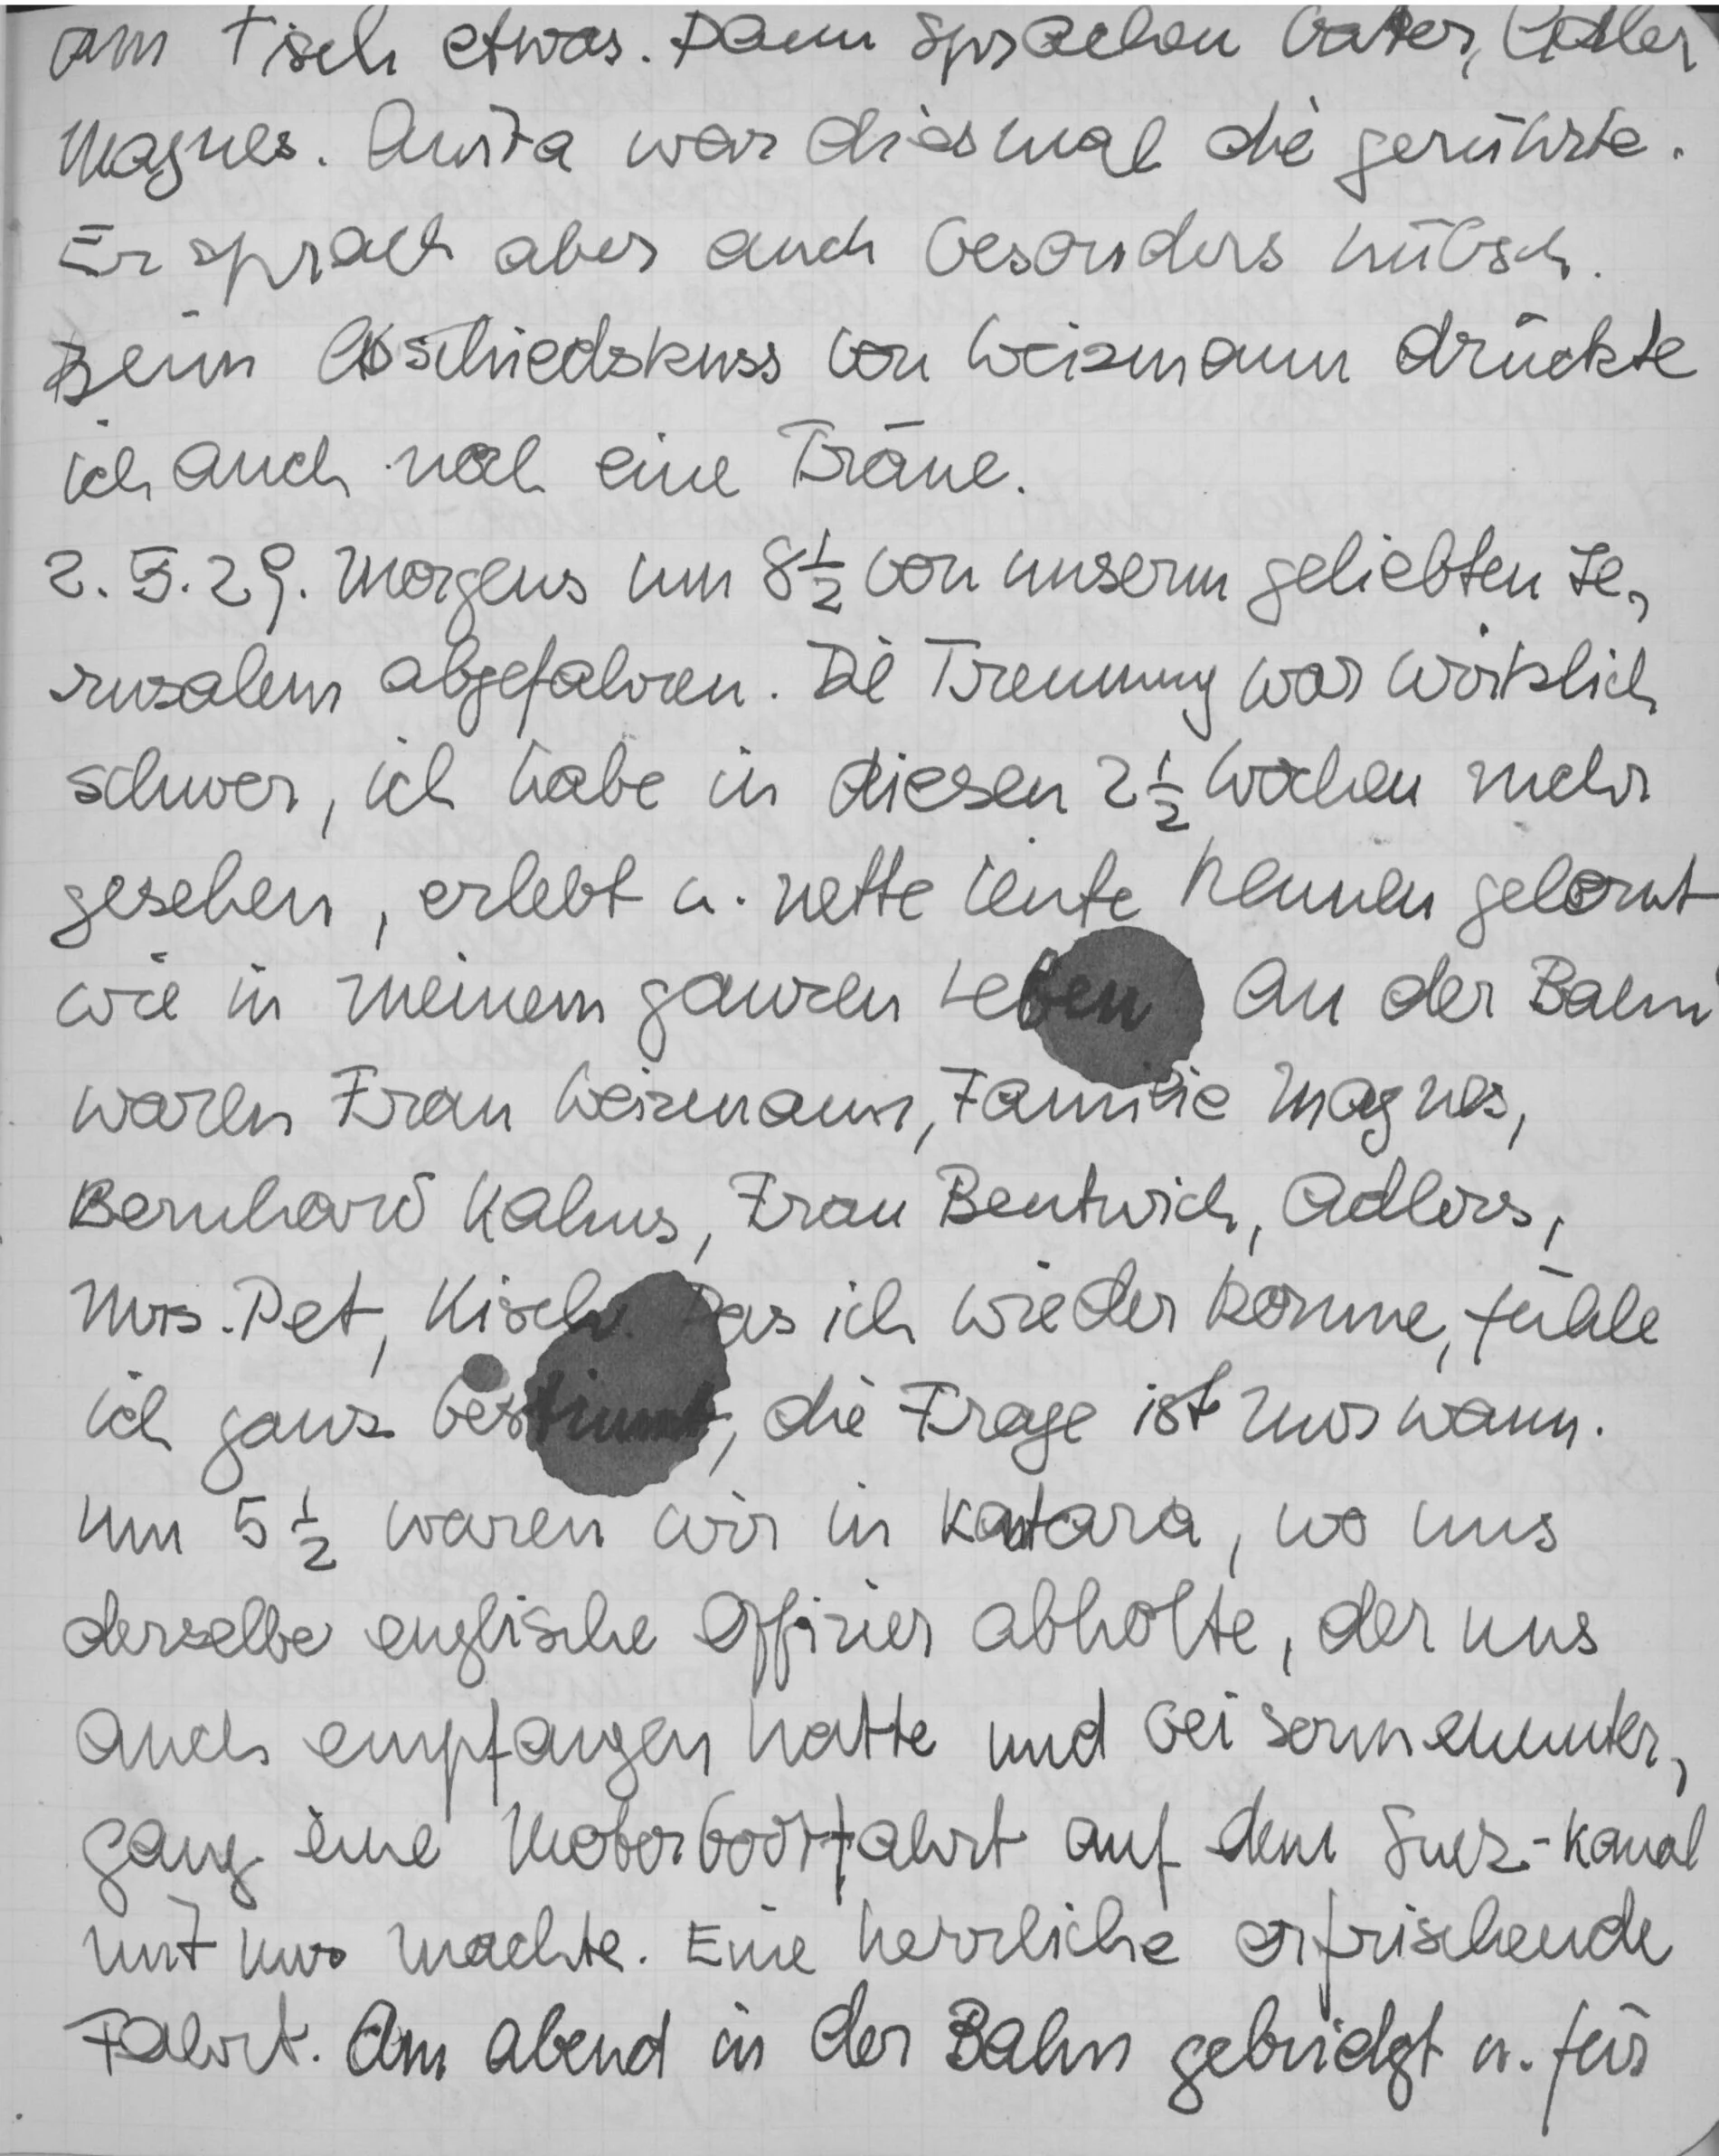 am Tisch etwas. Dann sprachen Vater, Adler
Magnes. Anita war diesmal die gerührte.
Er sprach aber auch besonders hübsch.
Beim Abschiedskuss von Weizmann drückte
ich auch noch eine Träne.
2. 5. 29. Morgens um 8½ von unserm geliebten Je,
rusalem abgefahren. Die Trennung war wirklich
schwer, ich habe in diesen 2½ Wochen mehr
gesehen, erlebt u. nette Leute kennen gelernt
wie in meinem ganzen Leben An der Bahn
waren Frau Weizmann, Familie Magnes,
Bernhard Kahns, Frau Bentwich, Adlers,
Mrs. Pet, Kisch. Das ich wieder komme, fühle
ich ganz bestimmt, die Frage ist nur wann.
Um 5½ waren wir in Kantara, wo uns
derselbe englische Offizier abholte, der uns
auch empfangen hatte und bei Sonnenunter,
gang eine Motorbootfahrt auf dem Suez-Kanal
mit uns machte. Eine herrliche erfrischende
Fahrt. Am Abend in der Bahn gebridgt u. für